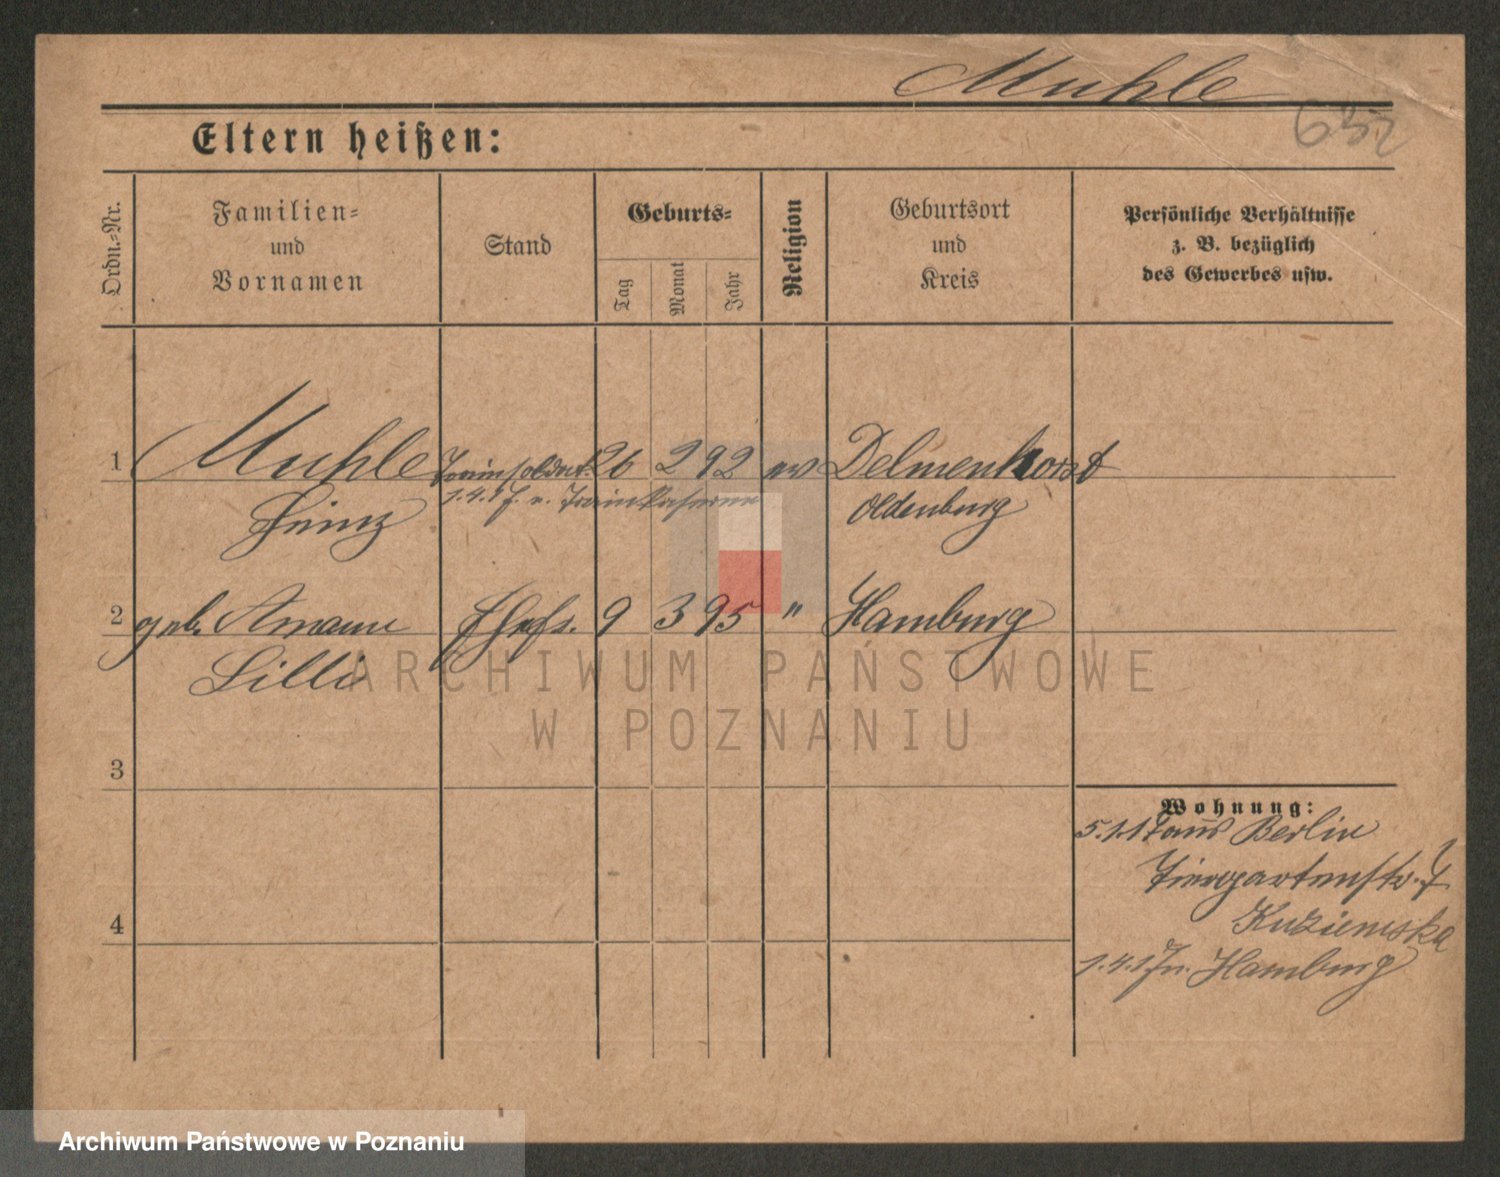 Muhle
652
Eltern heißen:
Ordn.-Nr.
Familien-
und
Vornamen
Stand
Geburts-
Tag
Monat
Jahr
Religion
Geburtsort
und
Kreis
Persönliche Verhältnisse
z. B. bezüglich
des Gewerbes usw.
1 Muhle Trainsoldat 26 2 92 ev Delmenhorst
1.4.17. n. Trainkaserne
Heinz Oldenburg
2 geb. Amann Ehefr. 9 3 95 " Hamburg
Lilli
3
4
Wohnung:
5.1.17 aus Berlin
Tiergartenstr. 7
1.4.17 n. Hamburg
ARCHIWUM PAŃSTWOWE
W POZNANIU
Archiwum Państwowe w Poznaniu